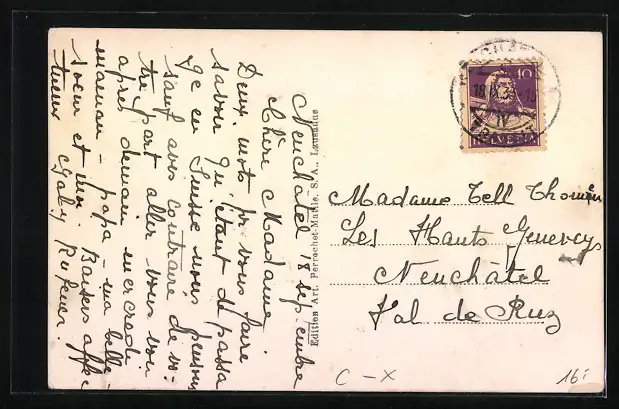 Neuchâtel 18 septembre
Chère Madame.
Deux mots pr vous faire
savoir qu'étant de passa
ge en Suisse nous pensons
sauf avis contraire de vo-
tre part aller vous voir
après demain mercredi
maman - papa - ma belle
soeur et moi. Baisers affec
tueux Gaby
Édition Art. Perrochet-Matile, S. A., Lausanne
18 IX 3
10
HELVETIA
Madame Tell Thomin
Les Hauts Geneveys
Neuchâtel
Val de Ruz
C - X
16.-